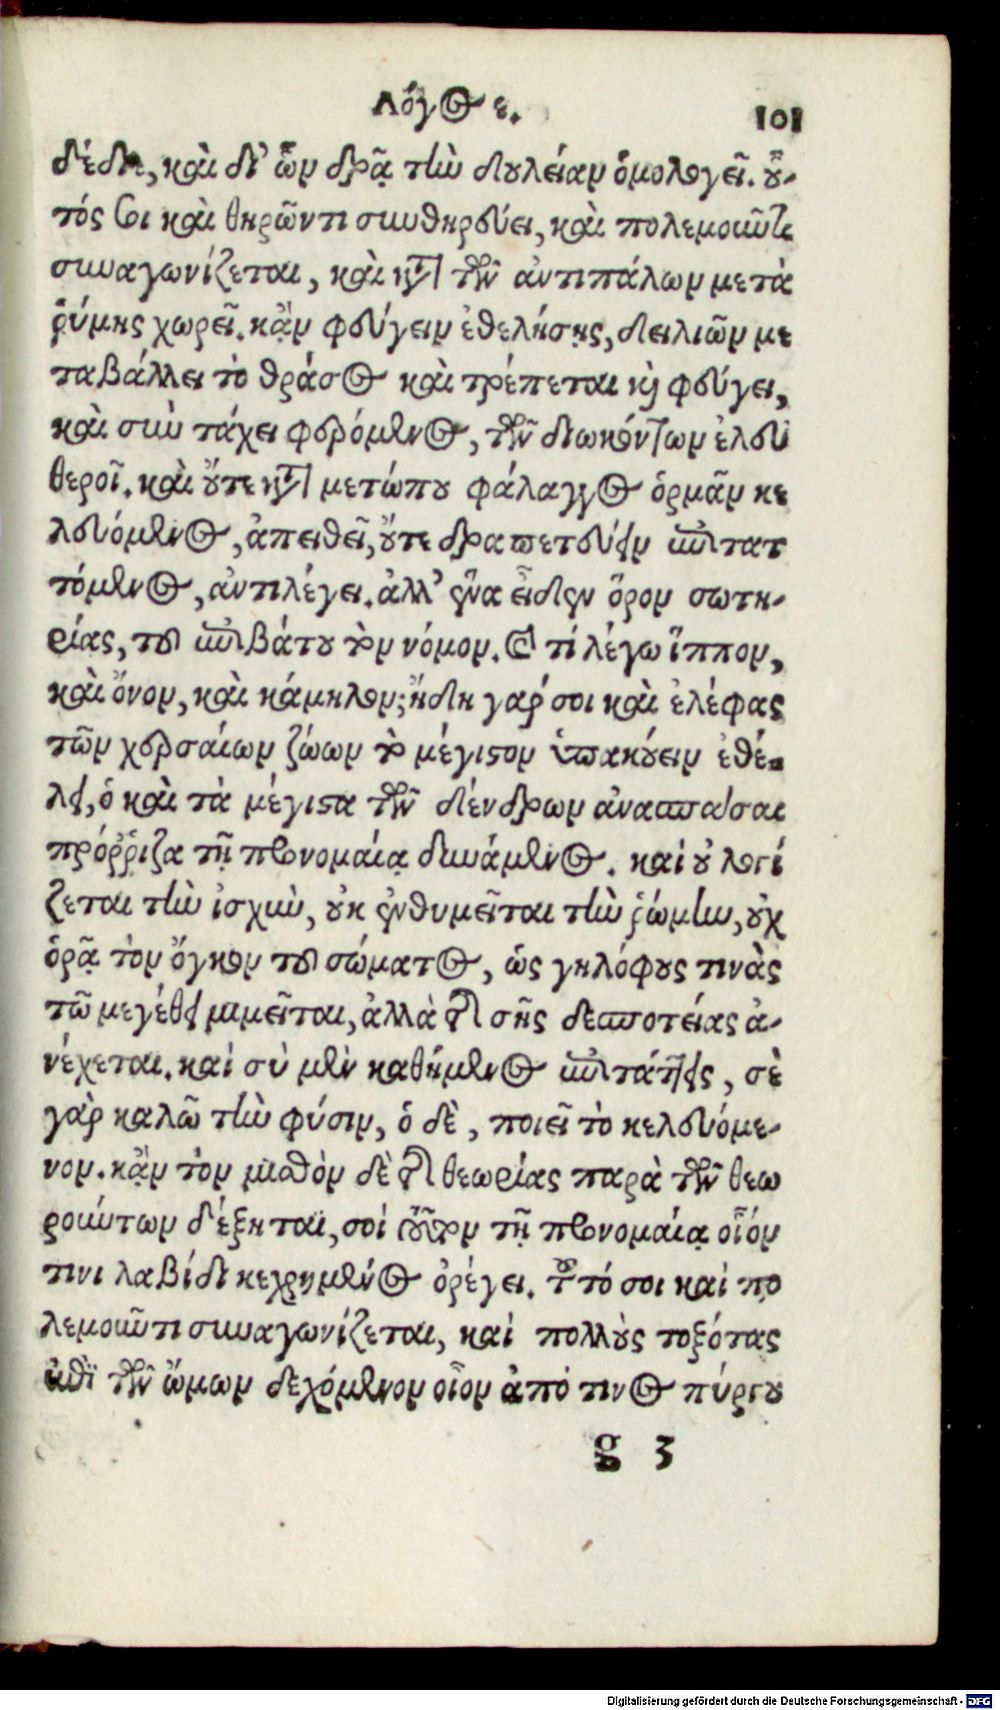 Λόγος ε. 101
δέδιε, καὶ δι' ὧν δρᾷ τὴν δουλείαν ὁμολογεῖ. οὗ-
τός σοι καὶ θηρῶντι συνθηρεύει, καὶ πολεμοῦντι
συναγωνίζεται, καὶ κατὰ τῶν ἀντιπάλων μετὰ
ῥύμης χωρεῖ. κᾂν φεύγειν ἐθελήσῃς, δειλιῶν με
ταβάλλει τὸ θράσος καὶ τρέπεται καὶ φεύγει,
καὶ σὺν τάχει φερόμενος, τῶν διωκόντων ἐλευ
θεροῖ. καὶ οὔτε κατὰ μετώπου φάλαγγος ὁρμᾶν κε
λευόμενος, ἀπειθεῖ, οὔτε δραπετεύειν ἐπιτατ
τόμενος, ἀντιλέγει. ἀλλ' ἕνα εἶδεν ὅρον σωτη-
ρίας, τοῦ ἐπιβάτου τὸν νόμον. Καὶ τί λέγω ἵππον,
καὶ ὄνον, καὶ κάμηλον; ἤδη γάρ σοι καὶ ἐλέφας
τῶν χερσαίων ζώων τὸ μέγιστον ὑπακούειν ἐθέ-
λει, ὁ καὶ τὰ μέγιστα τῶν δένδρων ἀνασπάσαι
πρόῤῥιζα τῇ προνομαίᾳ δυνάμενος. καὶ οὐ λογί
ζεται τὴν ἰσχὺν, οὐκ ἐνθυμεῖται τὴν ῥώμην, οὐχ
ὁρᾷ τὸν ὄγκον τοῦ σώματος, ὡς γηλόφους τινὰς
τῷ μεγέθει μιμεῖται, ἀλλὰ τῆς σῆς δεσποτείας ἀ-
νέχεται. καὶ σὺ μὲν καθήμενος ἐπιτάττεις, σὲ
γὰρ καλῶ τὴν φύσιν, ὁ δὲ, ποιεῖ τὸ κελευόμε-
νον. κᾂν τὸν μισθὸν δὲ τῆς θεωρίας παρὰ τῶν θεω
ρούντων δέξηται, σοὶ τοῦτον τῇ προνομαίᾳ οἷόν
τινι λαβίδι κεχρημένος ὀρέγει. τοῦτό σοι καὶ πο
λεμοῦντι συναγωνίζεται, καὶ πολλοὺς τοξότας
ἐπὶ τῶν ὤμων δεχόμενον οἷον ἀπό τινος πύργου
g 3
Digitalisierung gefördert durch die Deutsche Forschungsgemeinschaft - DFG